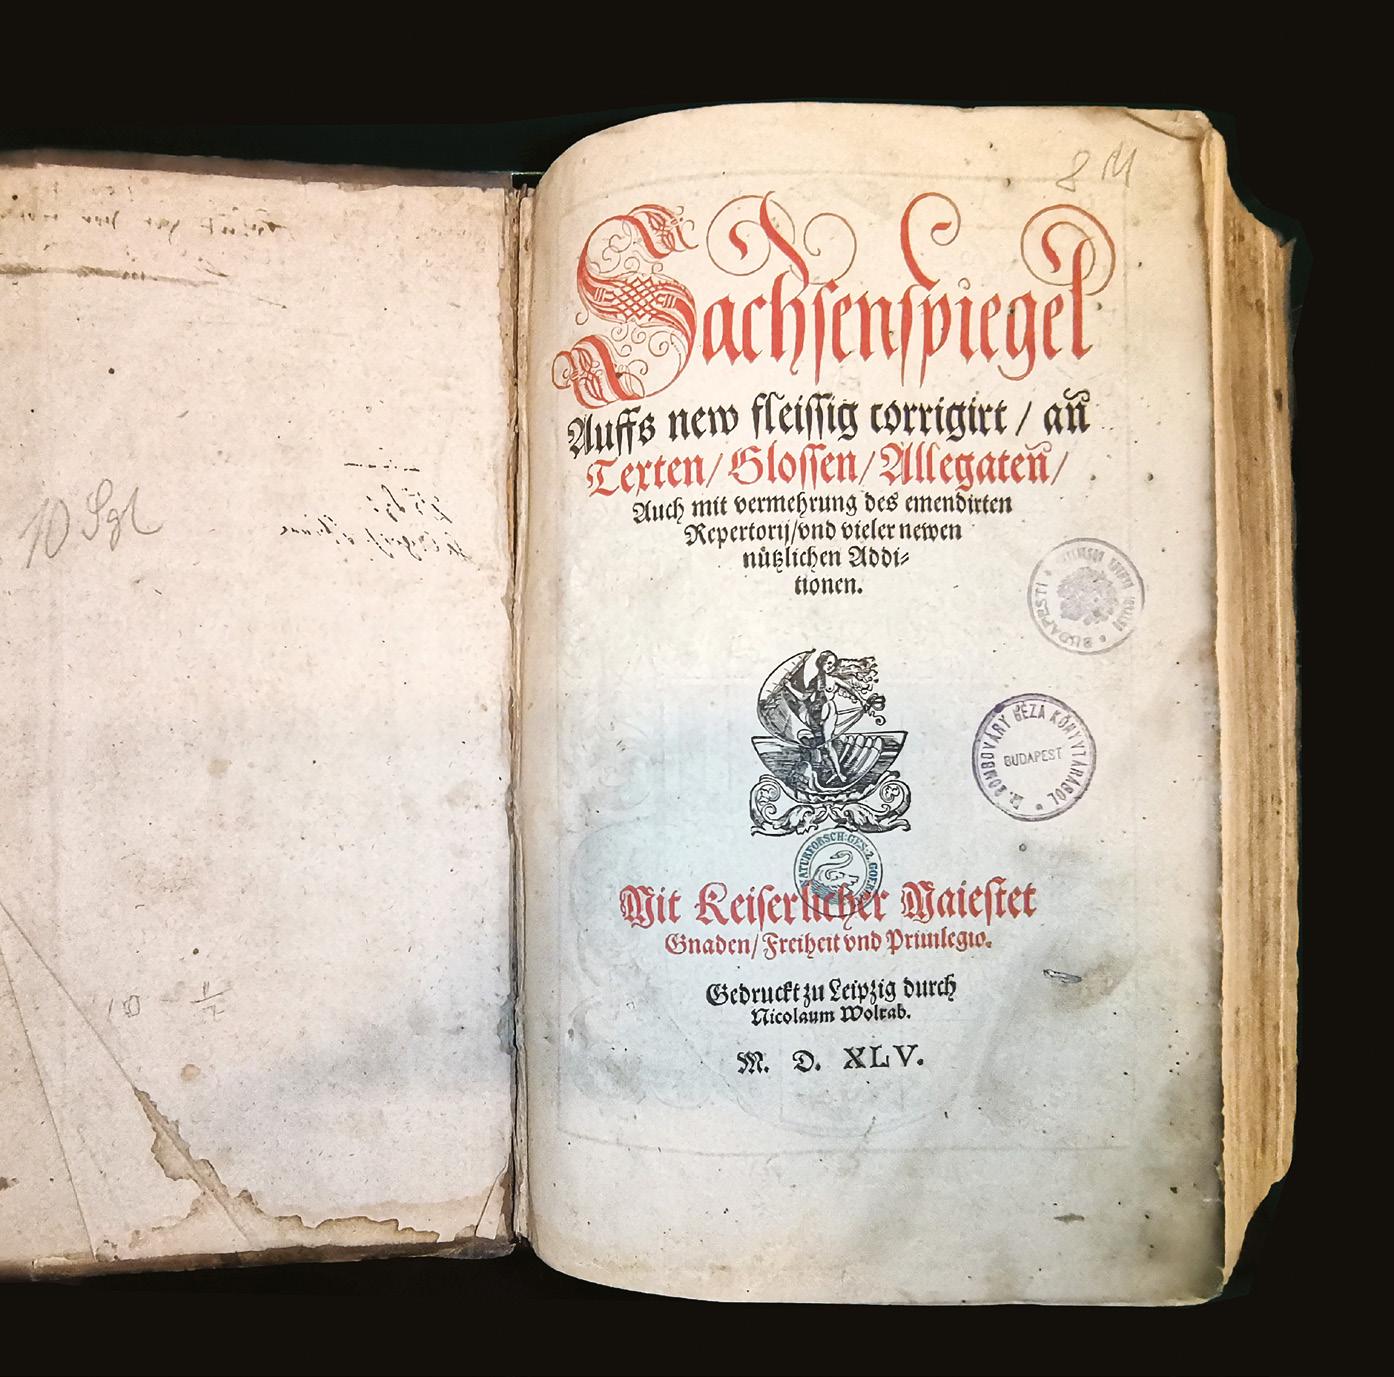 10 Sgl
8 M
Sachsenspiegel
Auffs new fleissig corrigirt / an̄
Texten/ Glossen/ Allegaten̄/
Auch mit vermehrung des emendirten
Repertorij/vnd vieler newen
nützlichen Addi⸗
tionen.
BUDAPESTI
BUDAPEST
BOMBOVÁRY GÉZA KÖNYVTÁRÁBÓL
BUDAPEST
NATURFORSCH: GES: Z. GOERL
Mit Keiserlicher Maiestet
Gnaden/ Freiheit vnd Priuilegio.
Gedruckt zu Leipzig durch
Nicolaum Wolrab.
M. D. XLV.